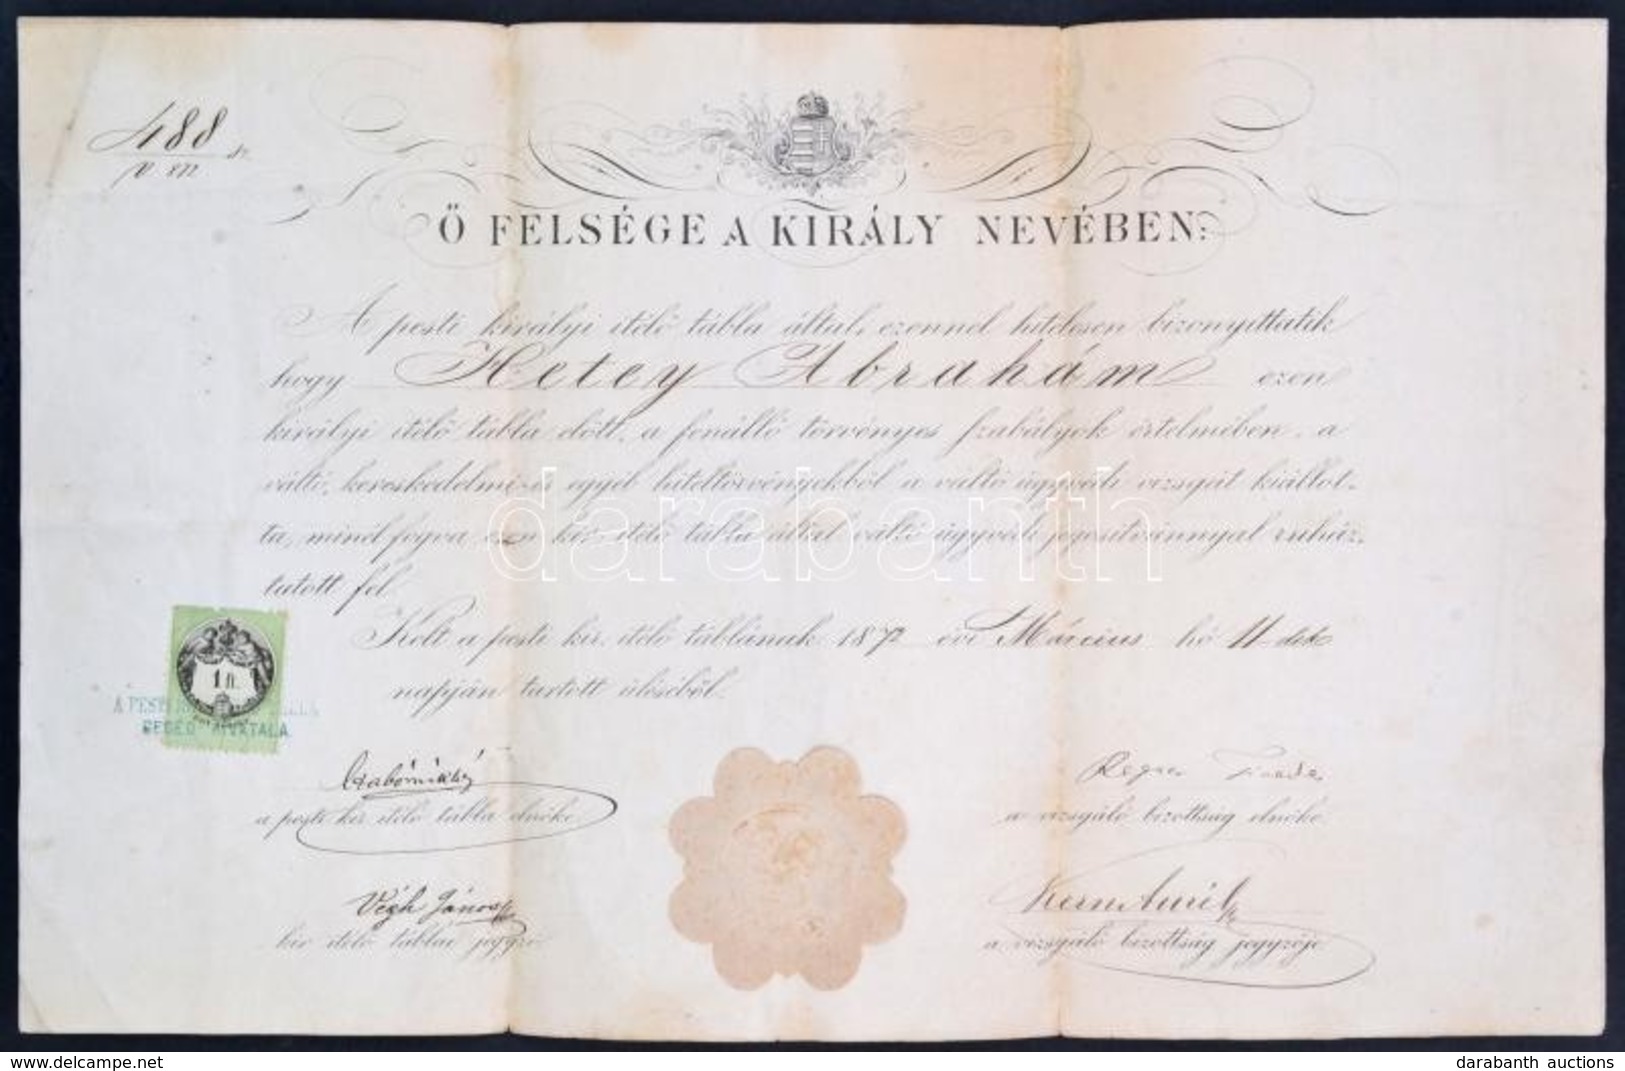 488
Ő FELSÉGE A KIRÁLY NEVÉBEN:
A pesti királyi itélő tábla által, ezennel hitelesen bizonyittatik
hogy Hetey Abrahám ezen
királyi itélő tábla előtt, a fenálló törvényes szabályok értelmében, a
váltó, kereskedelmi és egyéb hiteltörvényekből a váltó ügyvédi vizsgát kiállot-
ta, minél fogva ezen kir. itélő tábla által váltó ügyvédi jogositvánnyal ruház-
tatott fel.
Kelt a pesti kir. itélő táblának 1872 évi Március hó 11-dik
napján tartott üléséből.
1 ft.
A PESTI
SEGÉD HIVATALA
a pesti kir. itélő tábla elnöke
a vizsgáló bizottság elnöke
Végh János
Kern Aurél
kir itélő táblai jegyző
a vizsgáló bizottság jegyzője
darabanth
www.delcampe.net
darabanth auctions